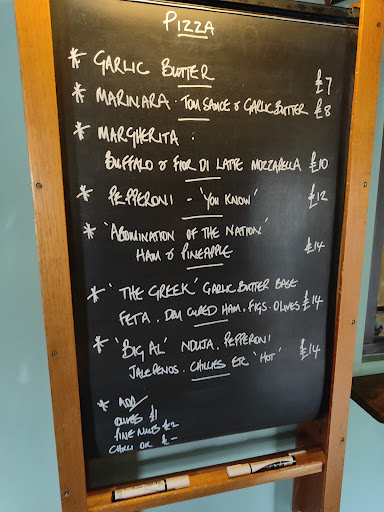 PIZZA
* GARLIC BUTTER £7
* MARINARA · TOM SAUCE & GARLIC BUTTER £8
* MARGHERITA .
BUFFALO & FIOR DI LATTE MOZZARELLA £10
* PEPPERONI - 'YOU KNOW' £12
* 'ABOMINATION OF THE NATION'
HAM & PINEAPPLE £14
* 'THE GREEK' GARLIC BUTTER BASE
FETA . CURED HAM . FIGS . OLIVES £14
* 'BIG AL' NDUJA . PEPPERONI
JALEPENOS . CHILLIES ER 'HOT' £14
* ADD
OLIVES £1
PINE NUTS £2
CHILLI OIL £-